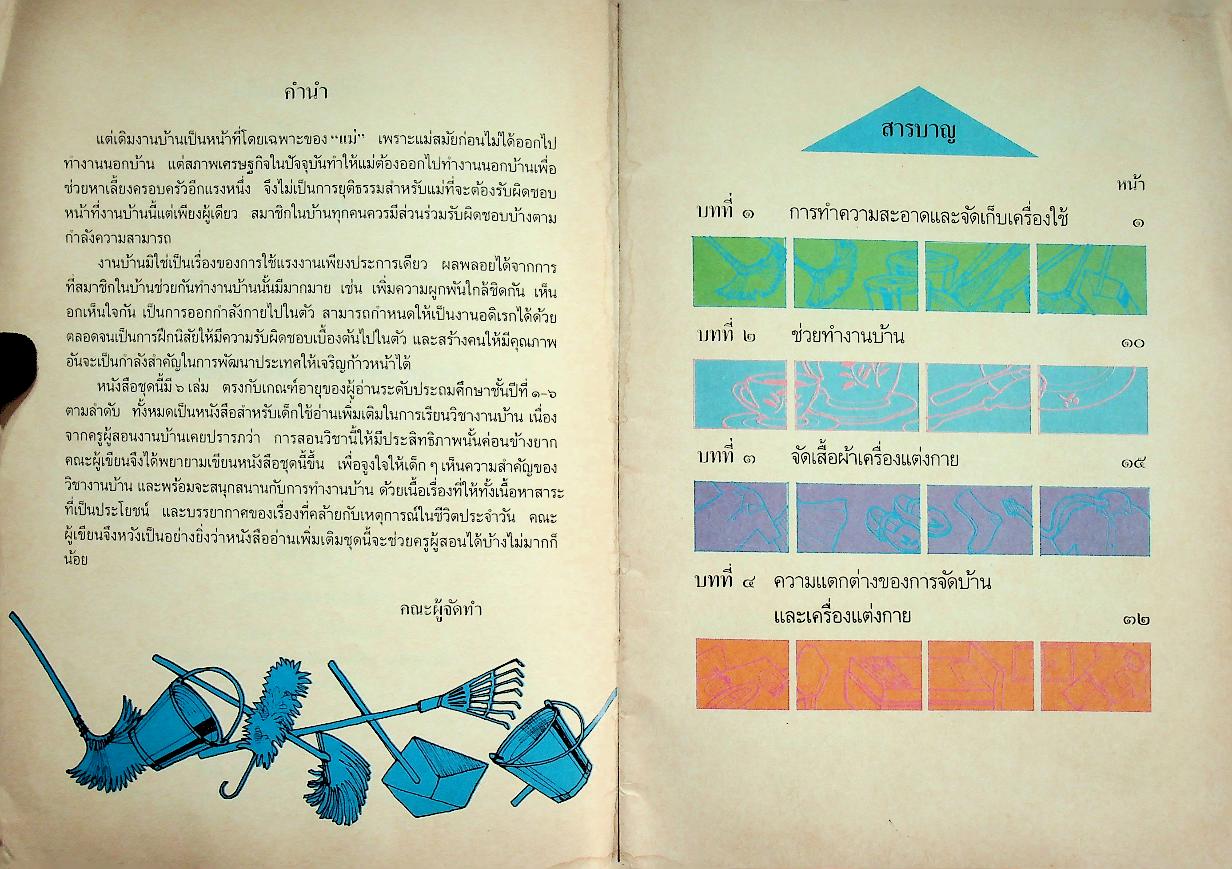 คำนำ
แต่เดิมงานบ้านเป็นหน้าที่โดยเฉพาะของ “แม่” เพราะแม่สมัยก่อนไม่ได้ออกไป
ทำงานนอกบ้าน แต่สภาพเศรษฐกิจในปัจจุบันทำให้แม่ต้องออกไปทำงานนอกบ้านเพื่อ
ช่วยหาเลี้ยงครอบครัวอีกแรงหนึ่ง จึงไม่เป็นการยุติธรรมสำหรับแม่ที่จะต้องรับผิดชอบ
หน้าที่งานบ้านนี้แต่เพียงผู้เดียว สมาชิกในบ้านทุกคนควรมีส่วนร่วมรับผิดชอบบ้างตาม
กำลังความสามารถ
งานบ้านมิใช่เป็นเรื่องของการใช้แรงงานเพียงประการเดียว ผลพลอยได้จากการ
ที่สมาชิกในบ้านช่วยกันทำงานบ้านนั้นมีมากมาย เช่น เพิ่มความผูกพันใกล้ชิดกัน เห็น
อกเห็นใจกัน เป็นการออกกำลังกายไปในตัว สามารถกำหนดให้เป็นงานอดิเรกได้ด้วย
ตลอดจนเป็นการฝึกนิสัยให้มีความรับผิดชอบเบื้องต้นไปในตัว และสร้างคนให้มีคุณภาพ
อันจะเป็นกำลังสำคัญในการพัฒนาประเทศให้เจริญก้าวหน้าได้
หนังสือชุดนี้มี ๖ เล่ม ตรงกับเกณฑ์อายุของผู้อ่านระดับประถมศึกษาชั้นปีที่ ๑-๖
ตามลำดับ ทั้งหมดเป็นหนังสือสำหรับเด็กใช้อ่านเพิ่มเติมในการเรียนวิชางานบ้าน เนื่อง
จากครูผู้สอนงานบ้านเคยปรารภว่า การสอนวิชานี้ให้มีประสิทธิภาพนั้นค่อนข้างยาก
คณะผู้เขียนจึงได้พยายามเขียนหนังสือชุดนี้ขึ้น เพื่อจูงใจให้เด็ก ๆ เห็นความสำคัญของ
วิชางานบ้าน และพร้อมจะสนุกสนานกับการทำงานบ้าน ด้วยเนื้อเรื่องที่ให้ทั้งเนื้อหาสาระ
ที่เป็นประโยชน์ และบรรยากาศของเรื่องที่คล้ายกับเหตุการณ์ในชีวิตประจำวัน คณะ
ผู้เขียนจึงหวังเป็นอย่างยิ่งว่าหนังสืออ่านเพิ่มเติมชุดนี้จะช่วยครูผู้สอนได้บ้างไม่มากก็
น้อย
คณะผู้จัดทำ
สารบาญ
หน้า
บทที่ ๑ การทำความสะอาดและจัดเก็บเครื่องใช้ ๑
บทที่ ๒ ช่วยทำงานบ้าน ๑๐
บทที่ ๓ จัดเสื้อผ้าเครื่องแต่งกาย ๑๕
บทที่ ๔ ความแตกต่างของการจัดบ้าน
และเครื่องแต่งกาย ๓๒